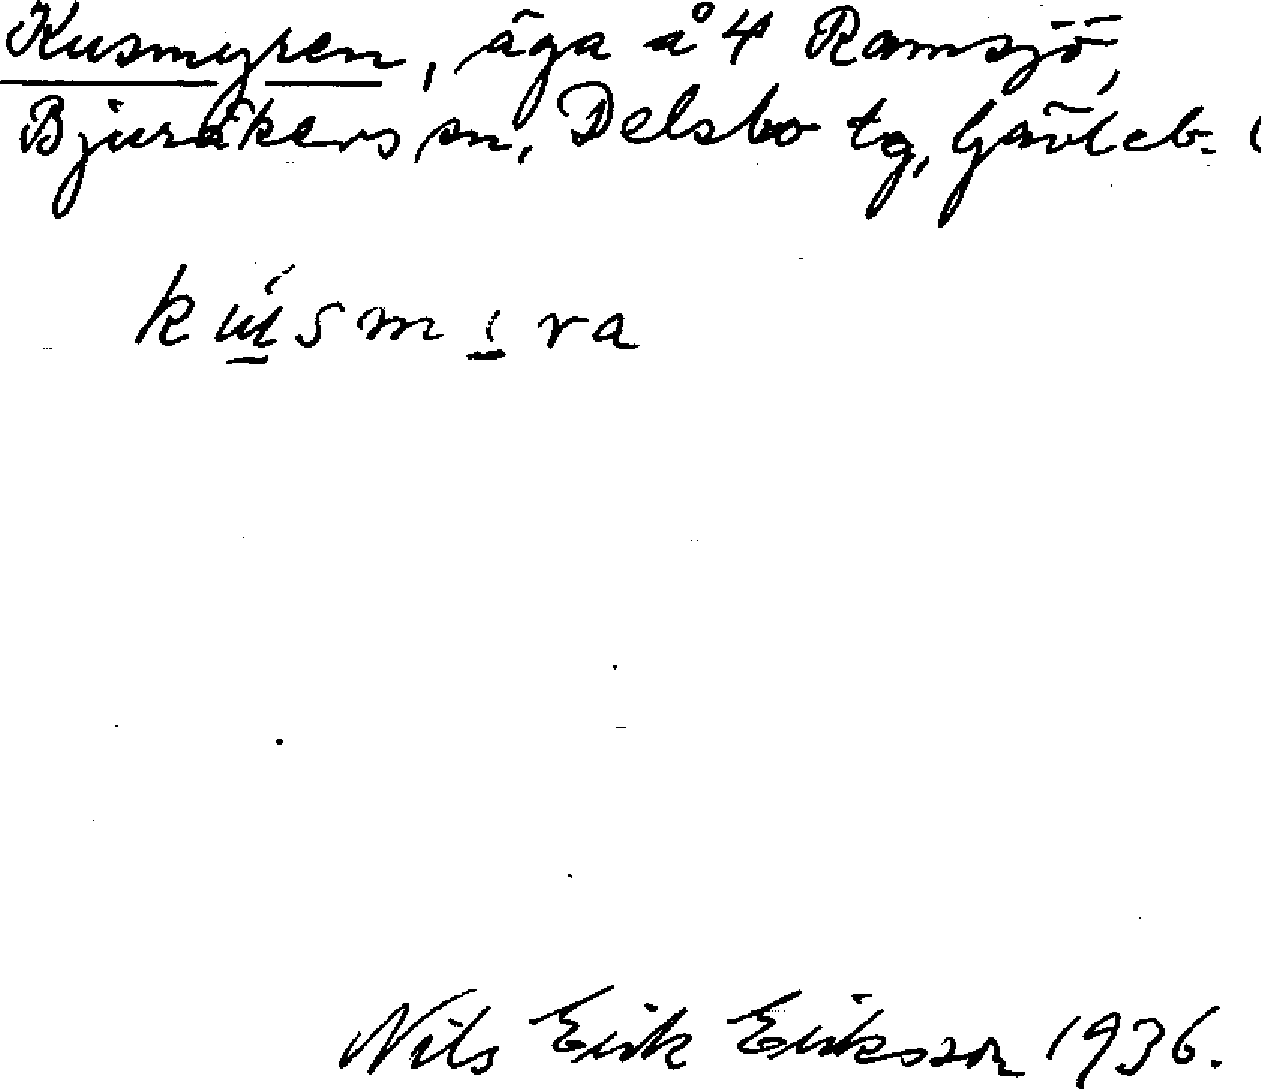 Kusmyren, äga å 4 Ramsjö,
Bjuråkers sn, Delsbo tg, Gävleb.
kusmira
Nils Erik Eriksson 1936.